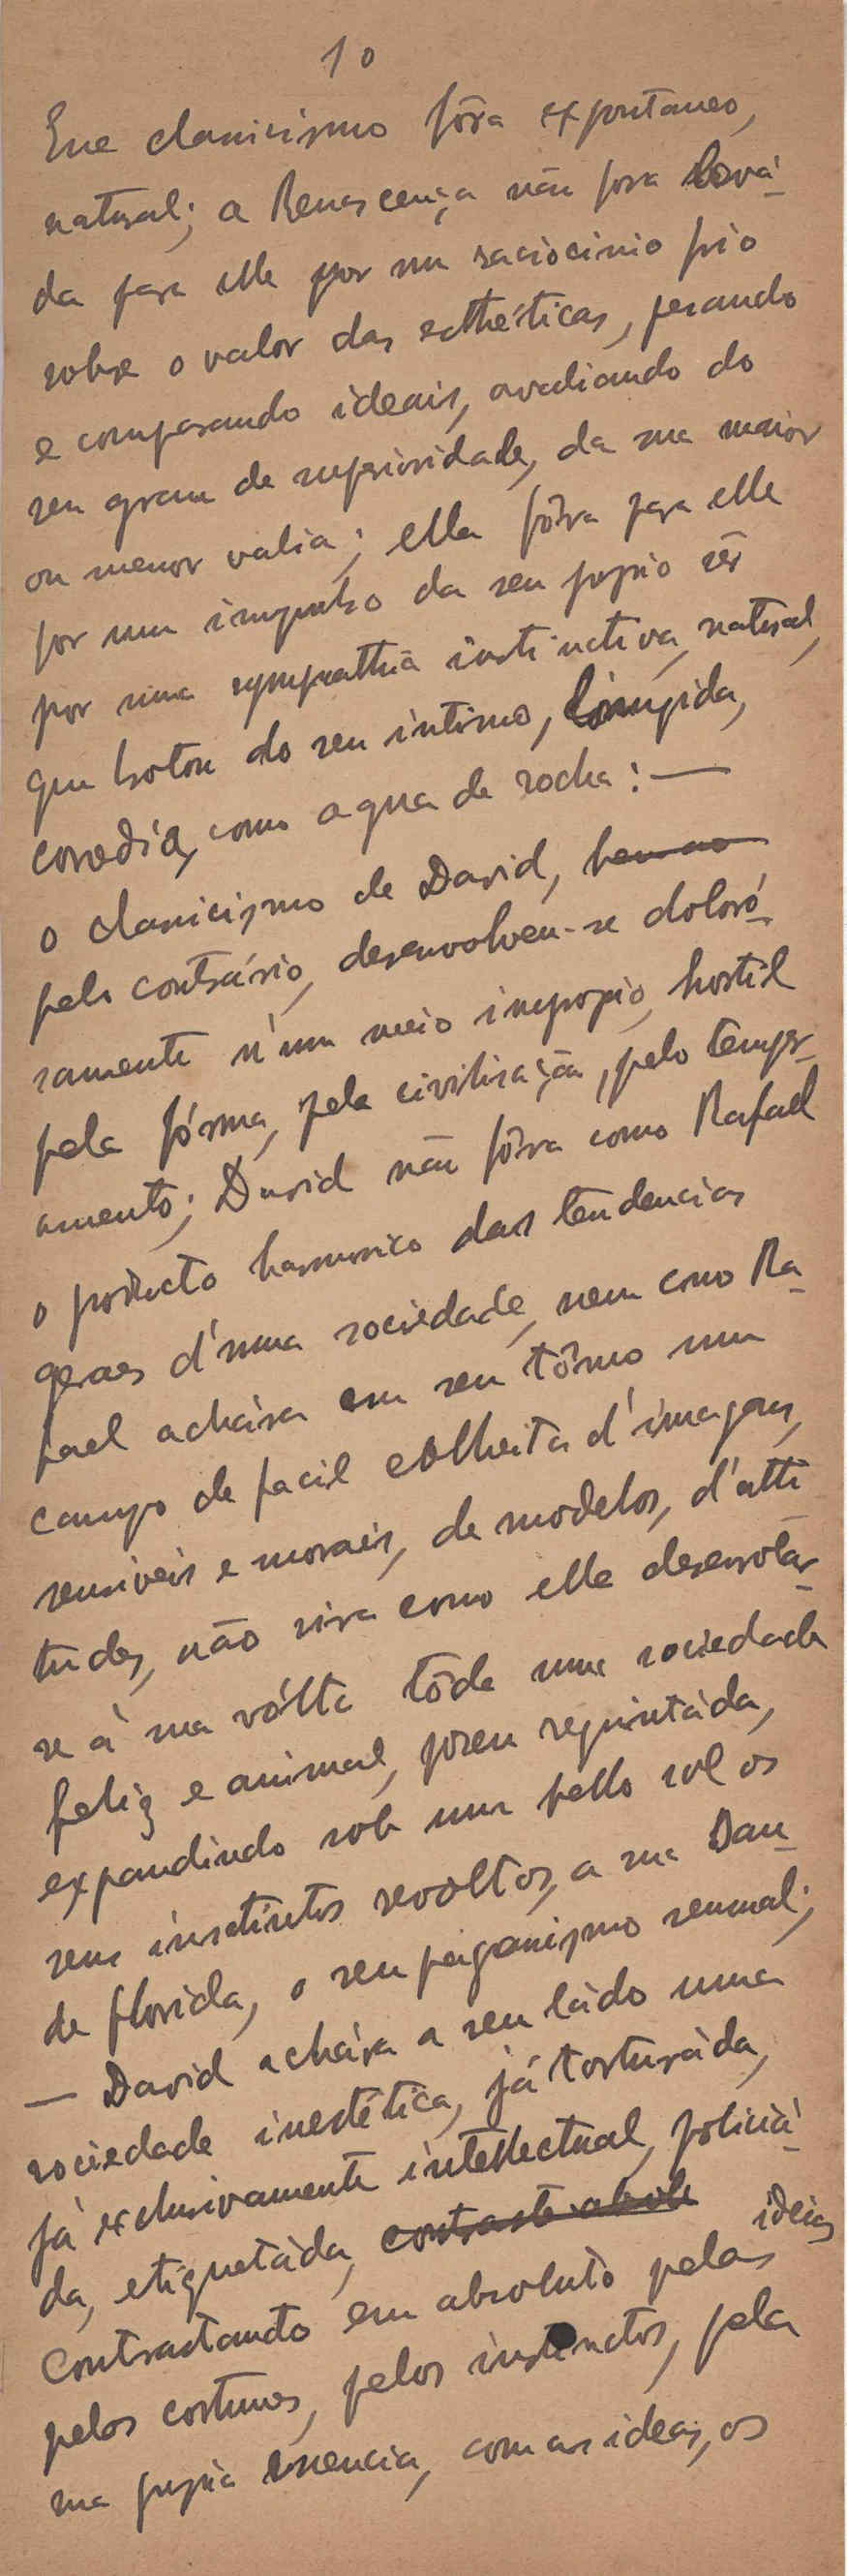 10
Esse classicismo fôra expontaneo,
natural; a Renascença não fora levá-
da para elle por um raciocinio frio
sobre o valor das esthéticas, pesando
e comparando ideais, avaliando do
seu grau de superioridade, da sua maior
ou menor valia; ella fôra para elle
por um impulso da seu propio sêr
por uma sympathia instinctiva, natural,
que brotou do seu intimo, limpida,
corredía, como agua de rocha: —
o classicismo de David,
pelo contrário, desenvolveu-se doloró-
samente n'um meio impropio, hostil
pela fórma, pela civilisação, pelo temper-
amento; David não fôra como Rafael
o producto harmonico das tendencias
geraes d'uma sociedade, nem como Ra-
fael achára em seu tôrno um
campo de facil colheita d'imagens,
sensiveis e morais, de modelos, d'atti-
tudes, não vira como elle desenrolar-
se á sua vólta tôda uma sociedade
feliz e animal, porem requintáda,
expandindo sob um bello sol os
seus instintos revoltos, a sua Sau-
de florida, o seu paganismo sensual;
— David achára a seu ládo uma
sociedade inestética, já torturáda,
já exclusivamente intellectual, policiá-
da, etiquetáda, contraste absolu
contrastando em absoluto pelas ideias
pelos costumes, pelos instinctos, pela
sua propia essencia, com as ideas, os